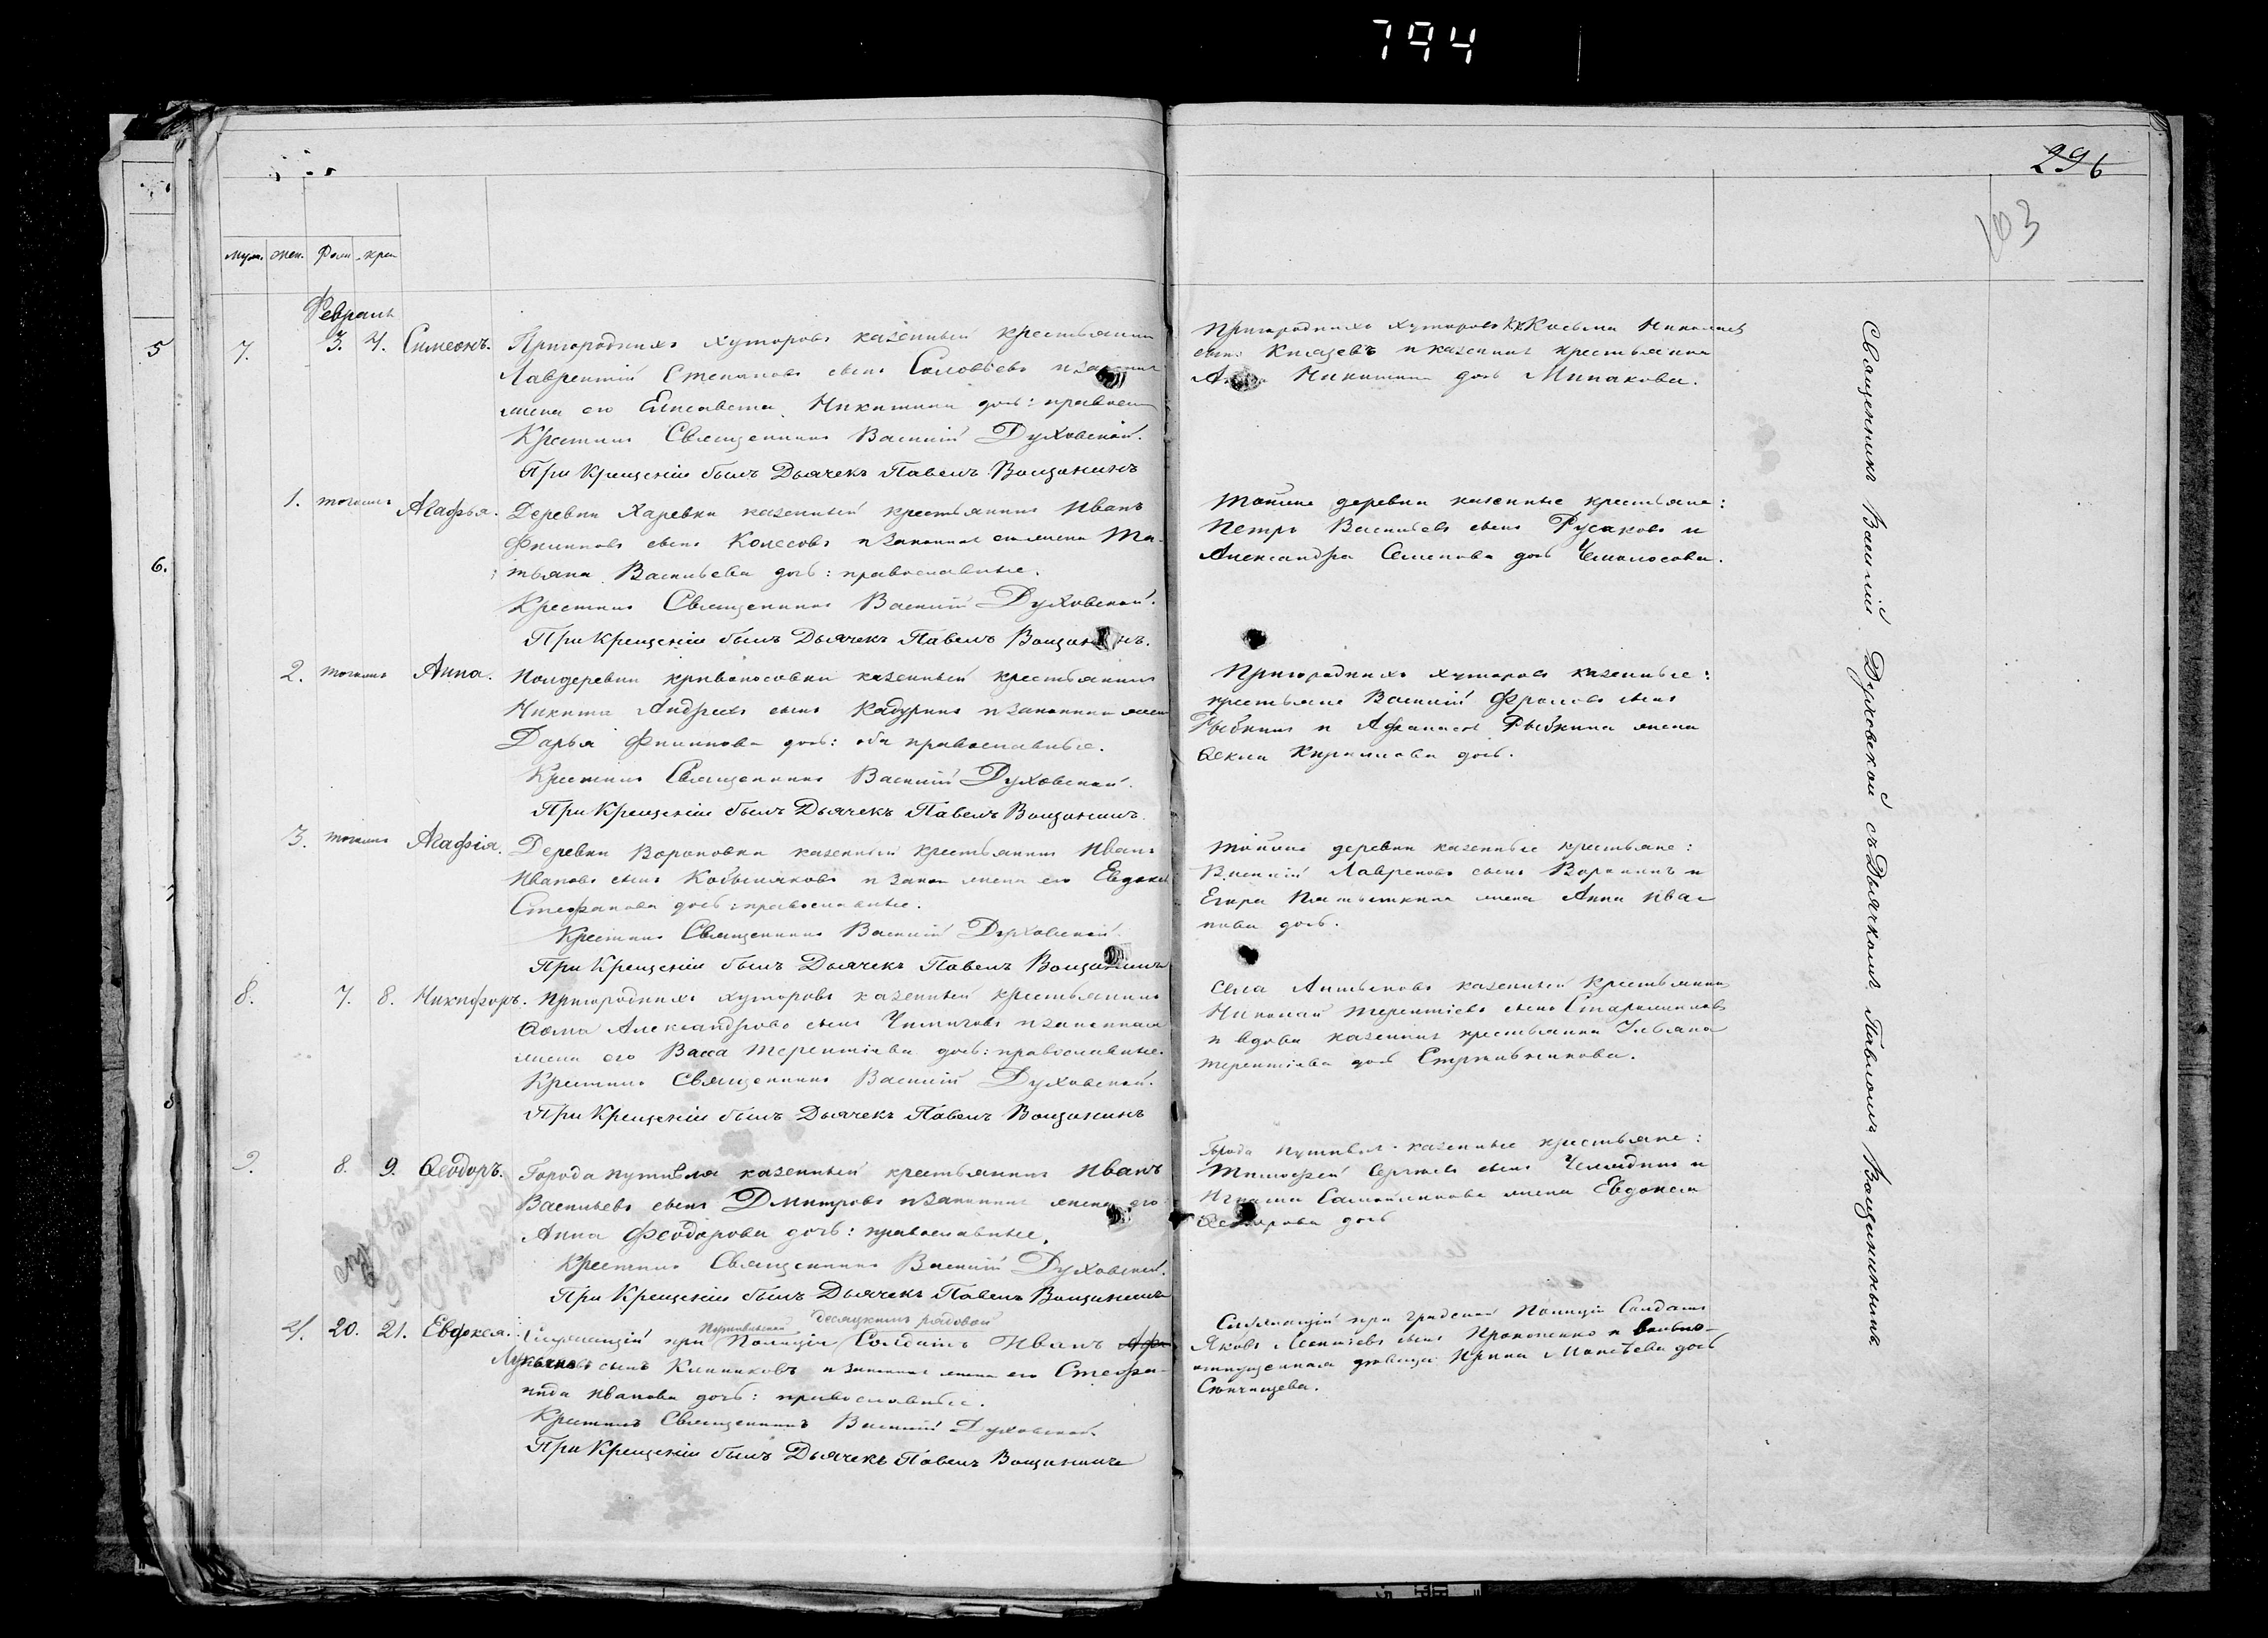 794
296
103
муж. жен. Рожд. крещ.
Февраль
5
7. 3. 4. Симеонъ. Пригородныхъ хуторовъ казенный крестьянинъ
Лаврентій Степановъ сынъ Соловьевъ и законная
жена его Елисавета Никитина дочь: православные
Крестилъ Священникъ Василій Духовской.
При Крещеніи былъ Дьячекъ Павелъ Вощининъ
Пригородныхъ хуторовъ Косьма Николаевъ
сынъ Князевъ и казенная крестьянка
Никитина дочь Минакова.
6.
1. тогожъ Агафья. Деревни Харевки казенный крестьянинъ Иванъ
Филиповъ сынъ Колесовъ и законная его жена Та-
тьяна Васильева дочь: православные.
Крестилъ Священникъ Василій Духовской.
При Крещеніи былъ Дьячекъ Павелъ Вощининъ.
Тойже деревни казенные крестьяне:
Петръ Васильевъ сынъ Русаковъ и
Александра Семенова дочь Чемолосова.
2. тогожъ Анна. Полдеревни кривоносовки казенный крестьянинъ
Никита Андреевъ сынъ Кадуринъ и законная жена
Дарья Филипова дочь: оба православные.
Крестилъ Священникъ Василій Духовской.
При Крещеніи былъ Дьячекъ Павелъ Вощининъ.
Пригородныхъ хуторовъ казенные:
крестьяне Василій Фроловъ сынъ
Рыбкинъ и Афанасія Рыбкина жена
Ѳекла Кирилова дочь.
3. тогожъ Агафія. Деревни Вороновки казенный крестьянинъ Иванъ
Ивановъ сынъ Кобыляковъ и закон жена его Евдокея
Стефанова дочь: православные.
Крестилъ Священникъ Василій Духовской.
При Крещеніи былъ Дьячекъ Павелъ Вощининъ
Тойже деревни казенные крестьяне:
Василій Лавреновъ сынъ Воронинъ и
Егора жена Анна Ива-
нова дочь.
8. 7. 8. Никифоръ. Пригородныхъ хуторовъ казенный крестьянинъ
Ѳома Александровъ сынъ и законная
жена его Васса Терентіева дочь: православные.
Крестилъ Священникъ Василій Духовской.
При Крещеніи былъ Дьячекъ Павелъ Вощининъ
Села казенный крестьянинъ
Николай Терентіевъ сынъ
и вдова казенная крестьянка Ульяна
Терентіева дочь
9. 8. 9. Ѳеодоръ. Города Путивля казенный крестьянинъ Иванъ
Васильевъ сынъ Дмитровъ и законная жена его
Анна Феодорова дочь: православные.
Крестилъ Священникъ Василій Духовской.
При Крещеніи былъ Дьячекъ Павелъ Вощининъ
Города Путивля казенные крестьяне:
Тимофей Сергѣевъ сынъ и
Игната жена Евдокея
дочь
4. 20. 21. Евдокея. Служащій при Путивльской Полиціи десяцкимъ рядовой Солдатъ Иванъ
Лукьяновъ сынъ и законная жена его Стефа-
нида Иванова дочь: православные.
Крестилъ Священникъ Василій Духовской
При Крещеніи былъ Дьячекъ Павелъ Вощининъ
Служащій при градской Полиціи Солдатъ
Яковъ Леонтіевъ сынъ Прокопенко и вольно-
отпущенная дѣвица Ирина Моисѣева дочь
Священникъ Василій Духовской съ Дьячкомъ Павломъ Вощининымъ